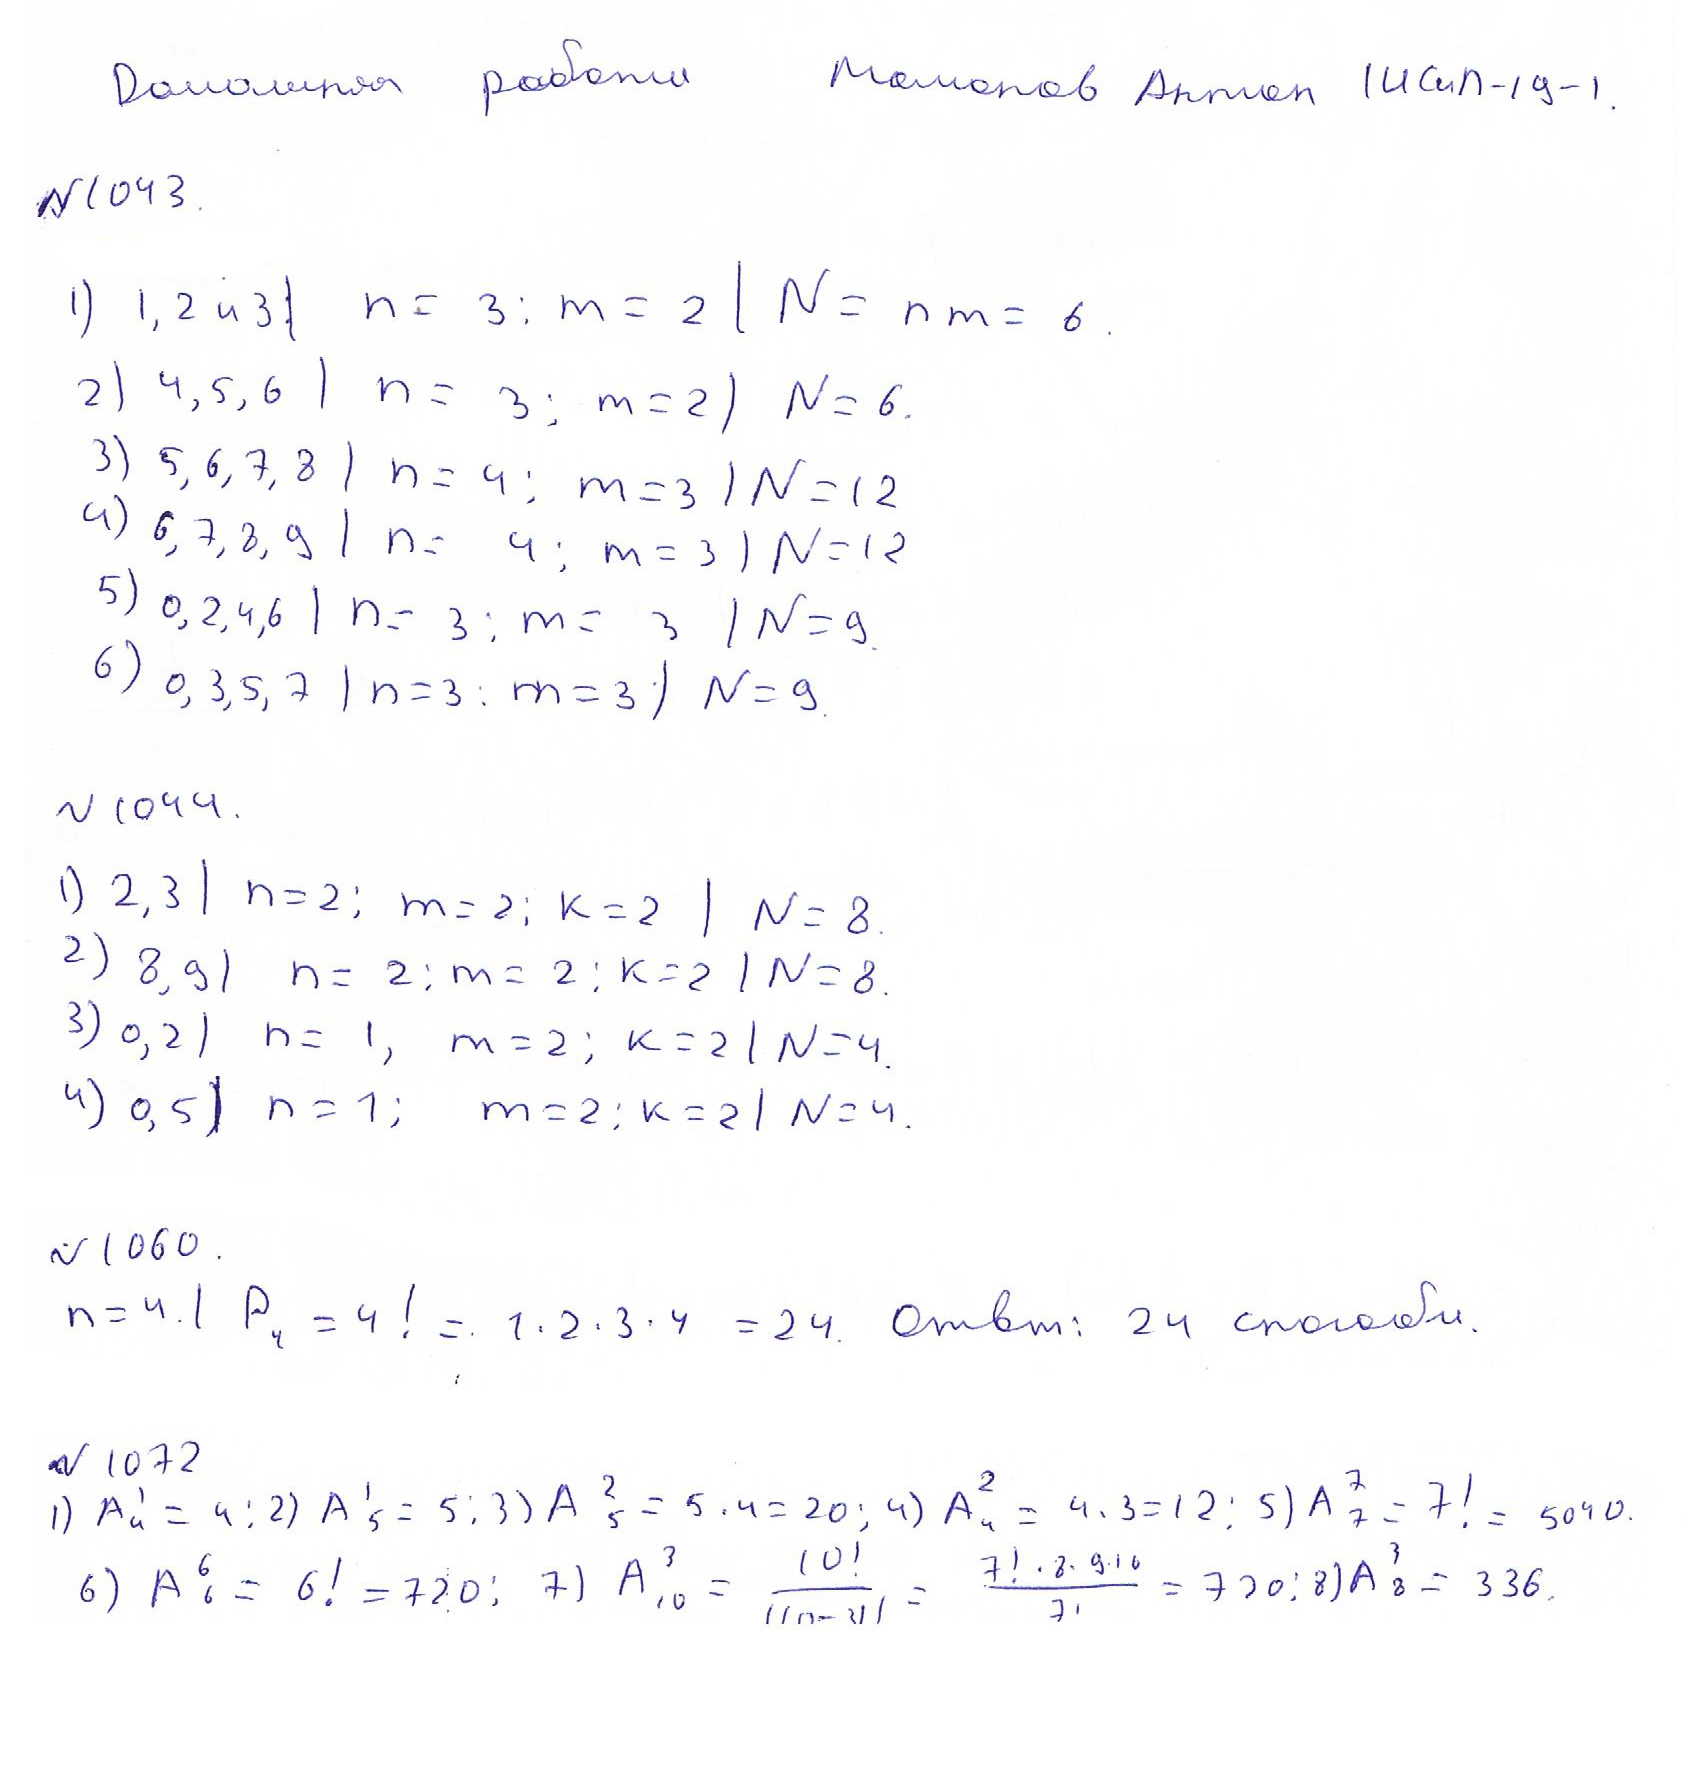 Домашняя работа Мамонов Антон 1ИСиП-19-1.
№1043.
1) 1, 2 и 3 | n = 3; m = 2 | N = nm = 6.
2) 4, 5, 6 | n = 3; m = 2 | N = 6.
3) 5, 6, 7, 8 | n = 4; m = 3 | N = 12
4) 6, 7, 8, 9 | n = 4; m = 3 | N = 12
5) 0, 2, 4, 6 | n = 3; m = 3 | N = 9.
6) 0, 3, 5, 7 | n = 3; m = 3 | N = 9.
№1044.
1) 2, 3 | n = 2; m = 2; k = 2 | N = 8.
2) 8, 9 | n = 2; m = 2; k = 2 | N = 8.
3) 0, 2 | n = 1, m = 2; k = 2 | N = 4.
4) 0, 5 | n = 1; m = 2; k = 2 | N = 4.
№1060.
n = 4. | P₄ = 4! = 1·2·3·4 = 24. Ответ: 24 способа.
№1072
1) A₄¹ = 4; 2) A₅¹ = 5; 3) A₅² = 5·4 = 20; 4) A₄² = 4·3 = 12; 5) A₇⁷ = 7! = 5040.
6) A₆⁶ = 6! = 720; 7) A₁₀³ = 10! / = 7!·8·9·10 / 7! = 720; 8) A₈³ = 336.